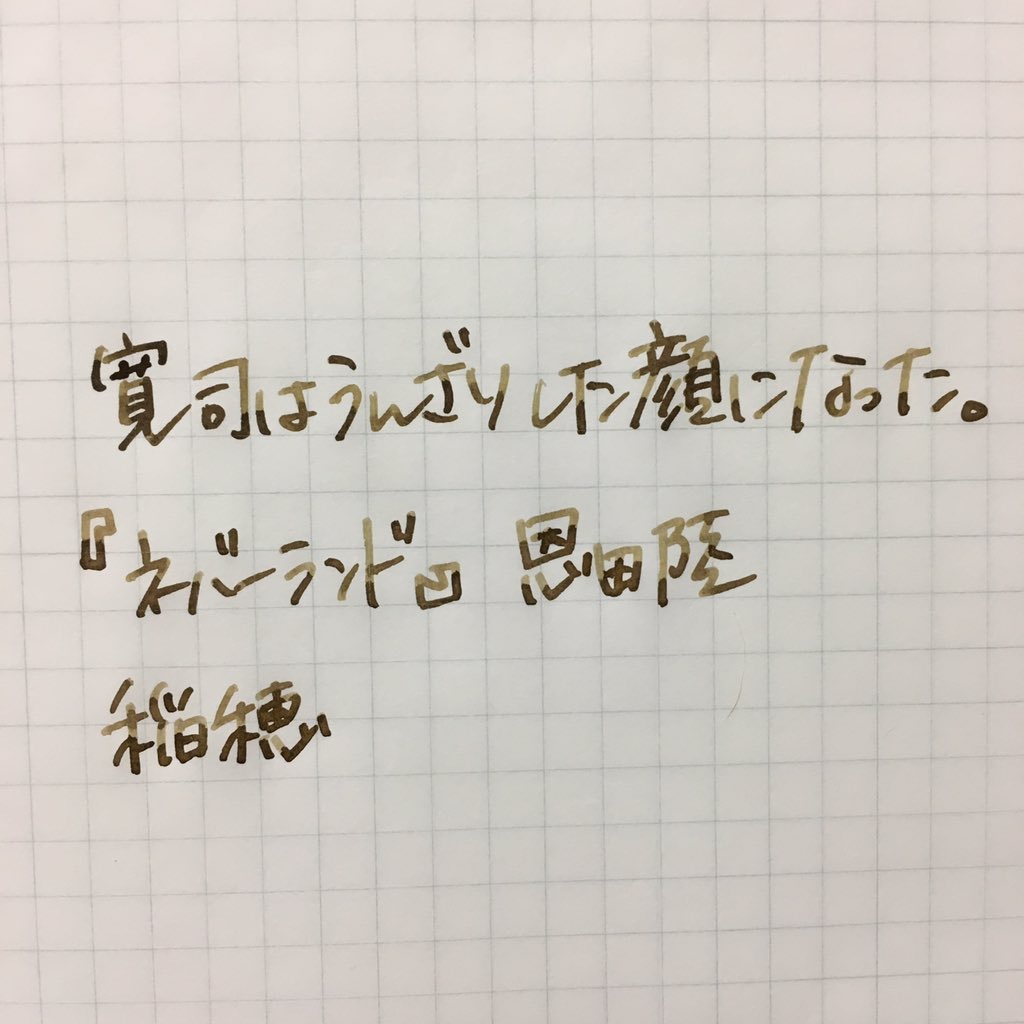 寛司はうんざりした顔になった。
『ネバーランド』 恩田陸
稲穂